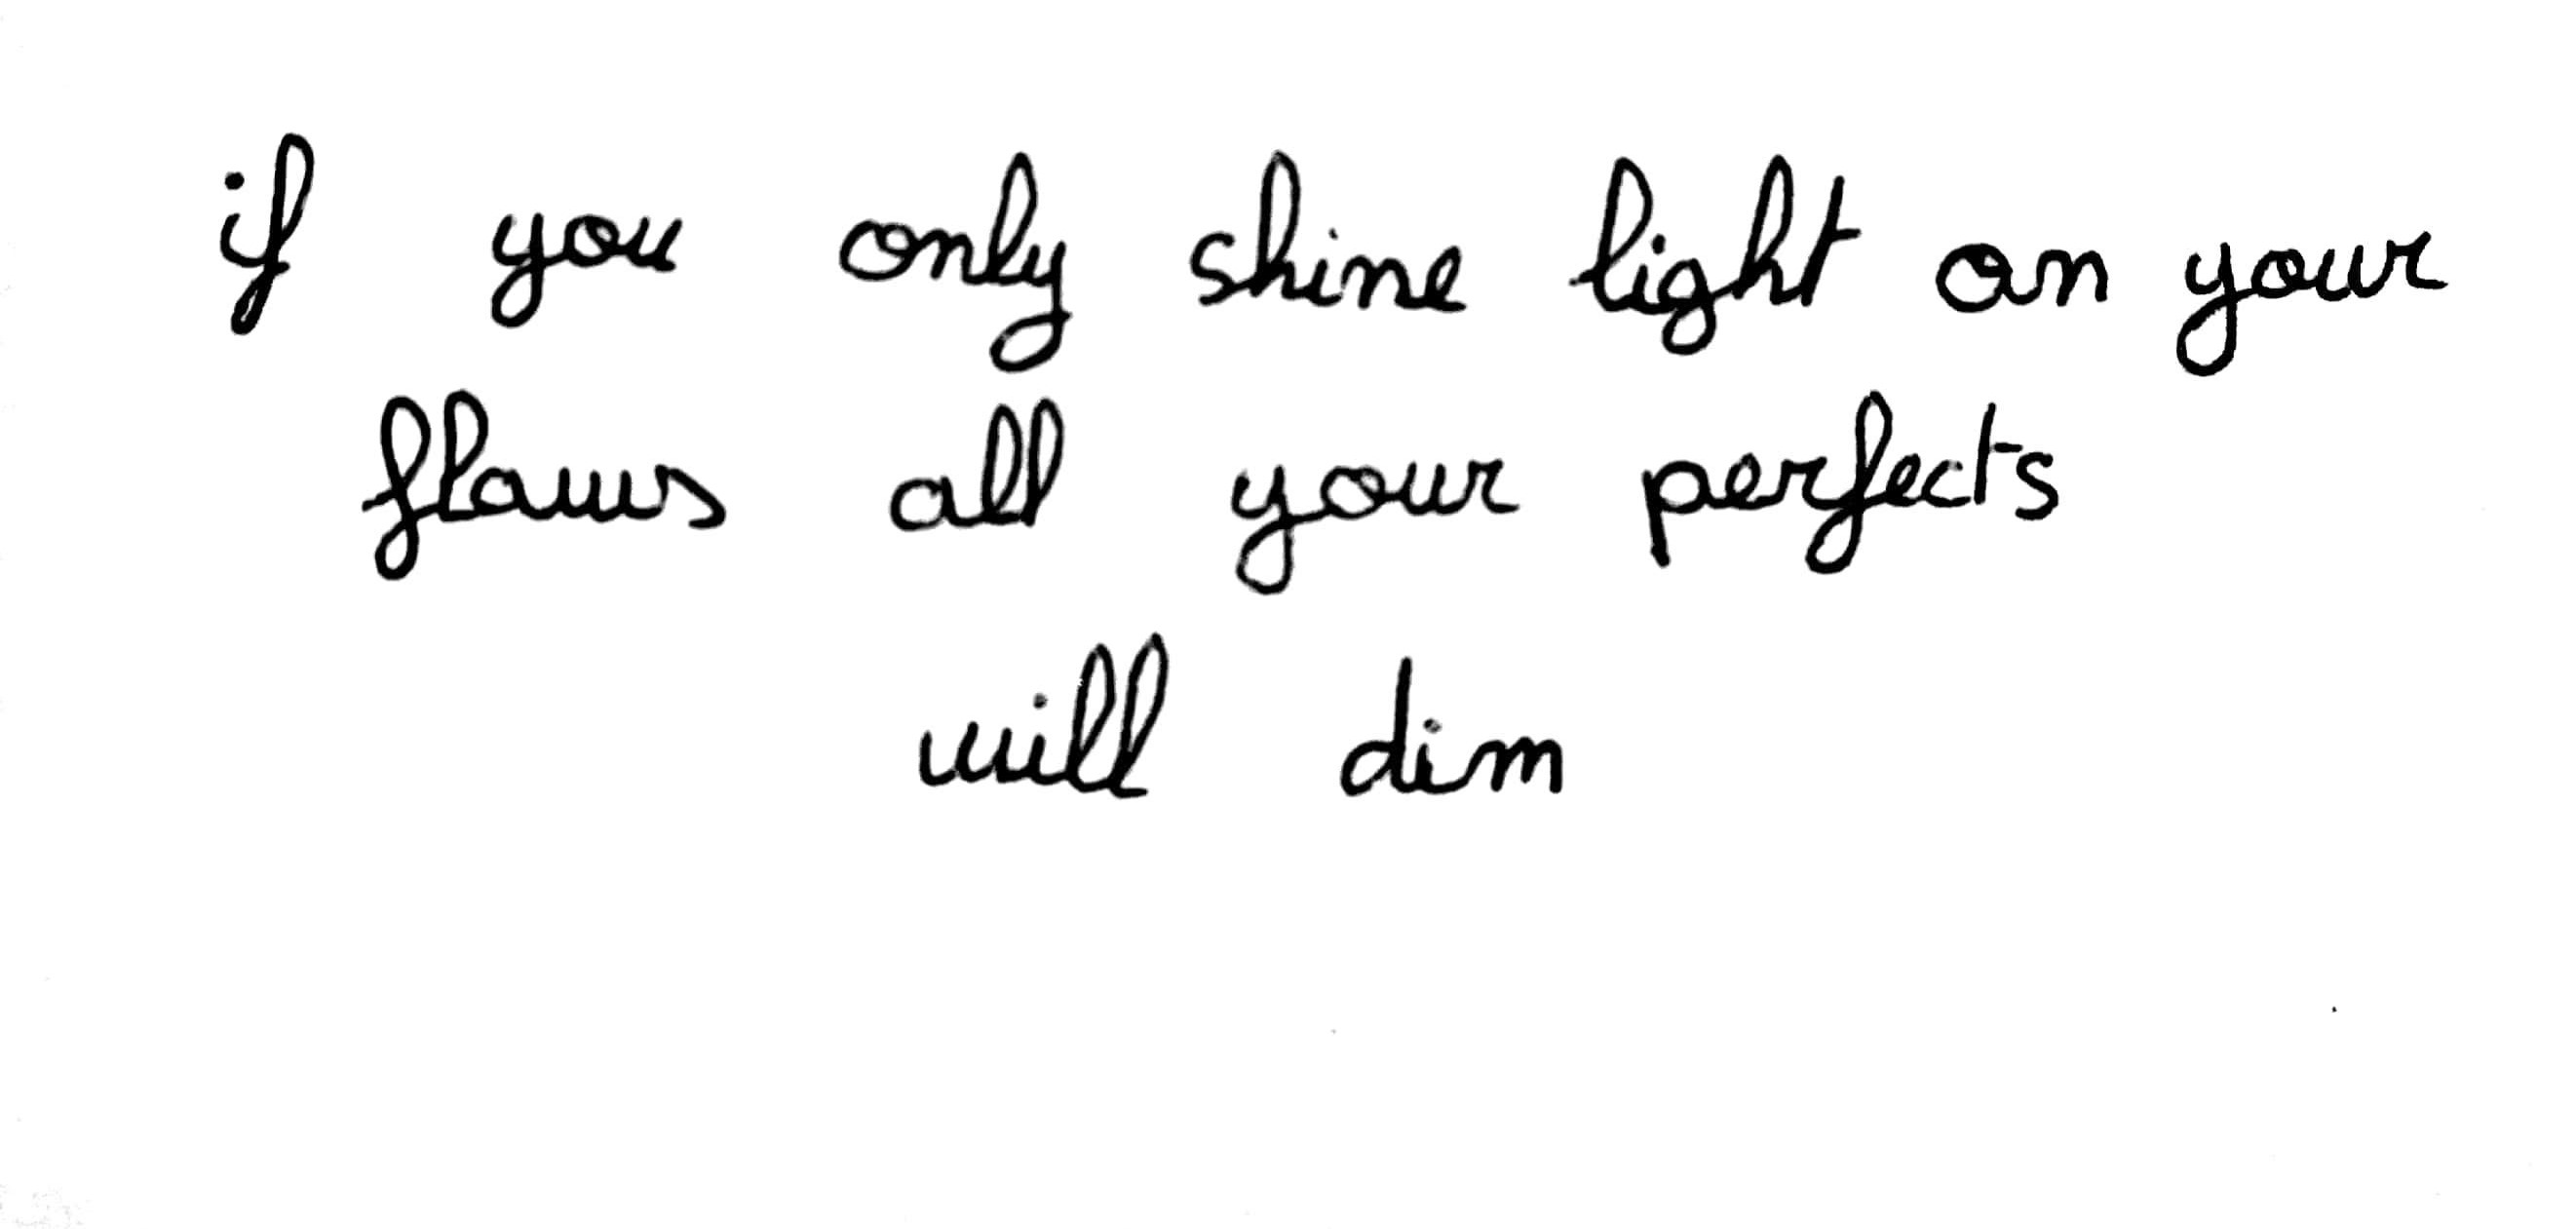 if you only shine light on your
flaws all your perfects
will dim